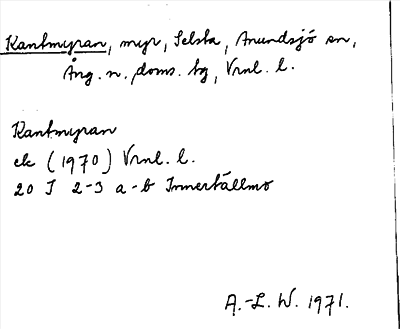 Kantmyran, myr, Selsta, Anundsjö sn,
Ång. n. doms. tg, Vrnl. l.
Kantmyran
ek (1970) Vrnl. l.
20 I 2-3 a-b Innertällmo
A.-L. W. 1971.